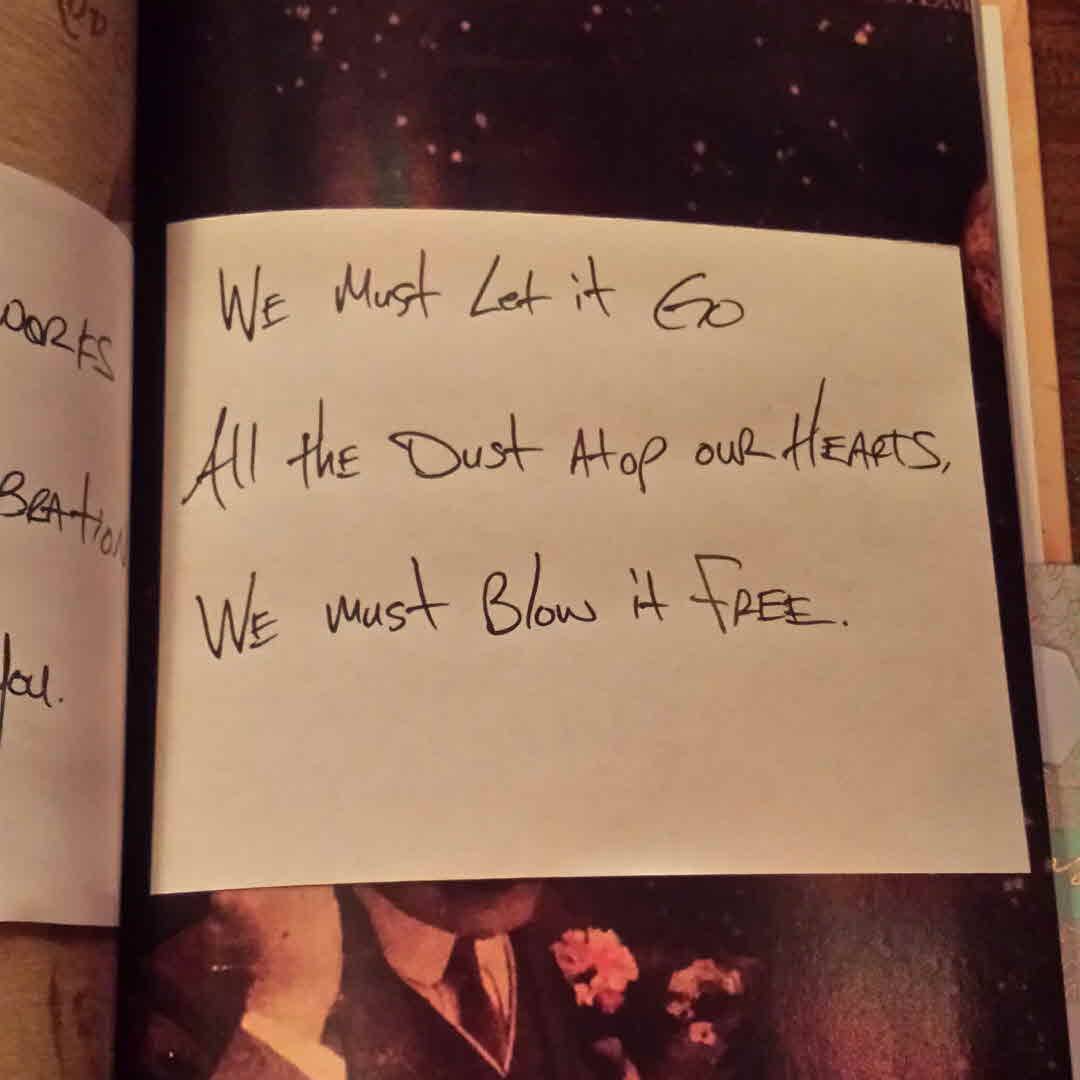 We Must Let it Go
All the Dust Atop our Hearts,
We must Blow it Free.
you.